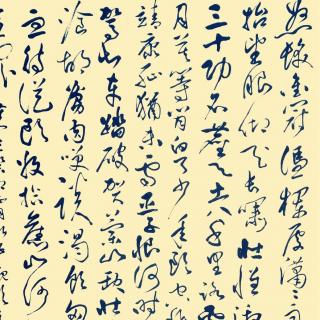 怒髮衝冠憑欄處瀟瀟雨
抬望眼仰天長嘯壯懷激
三十功名塵與土八千里路雲
月莫等閒白了少年頭空悲
靖康恥猶未雪臣子恨何時
駕長車踏破賀蘭山缺壯
飡胡虜肉笑談渴飲匈
血待從頭收拾舊山河